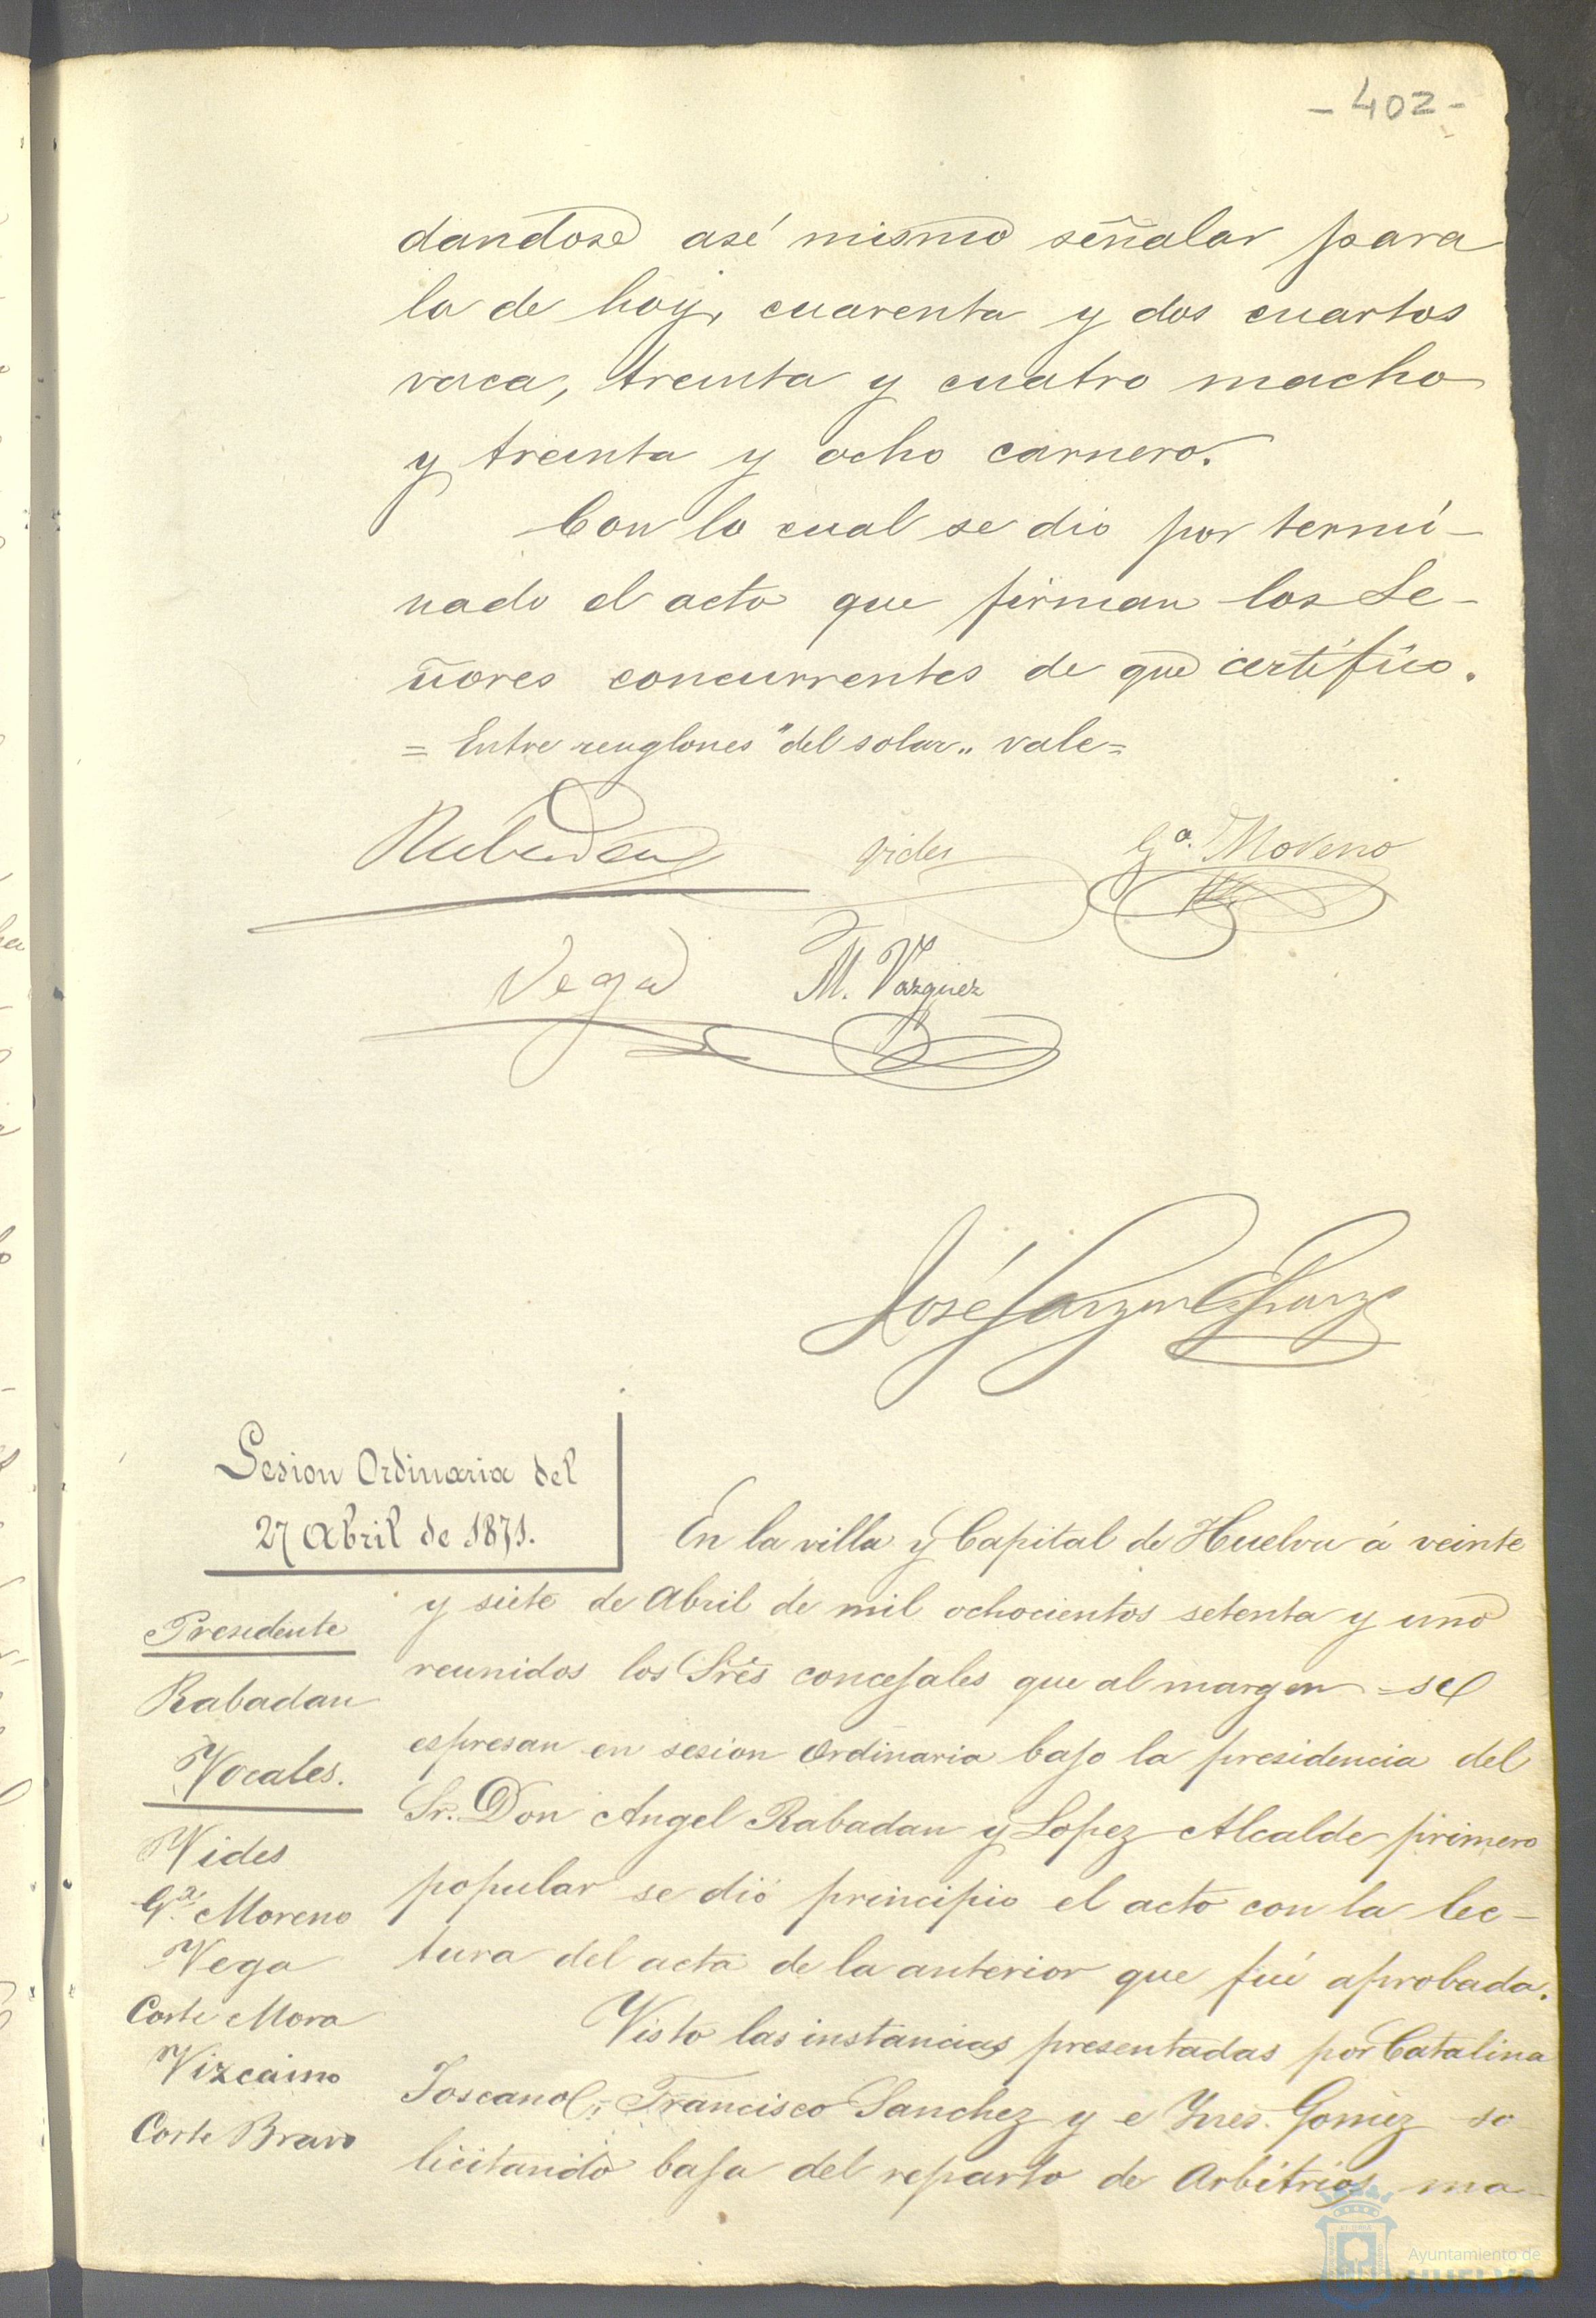 - 402 -
dandose asé mismo señalar para
la de hoy, cuarenta y dos cuartos
vaca, treinta y cuatro macho
y treinta y ocho carnero.
Con lo cual se dio por termi-
nado el acto que firman los Se-
ñores concurrentes de que certifico.
= Entre renglones "del solar" vale=
Rabadan Vides Gª. Moreno
Vega M. Vazquez
José
Sesion Ordinaria del
27 Abril de 1871.
En la villa y Capital de Huelva á veinte
y siete de Abril de mil ochocientos setenta y uno
reunidos los Sres concejales que al margen =se
espresan en sesion Ordinaria bajo la presidencia del
Sr. Don Angel Rabadan y Lopez Alcalde primero
popular se dió principio el acto con la lec-
tura del acta de la anterior que fué aprobada.
Visto las instancias presentadas por Catalina
Toscano, Francisco Sanchez y e Ynes Gomez so
licitando baja del reparto de Arbitrios, ma-
Presidente
Rabadan
Vocales.
Vides
Gª. Moreno
Vega
Corte Mora
Vizcaino
Corte Bravo
Ayuntamiento de
HUELVA